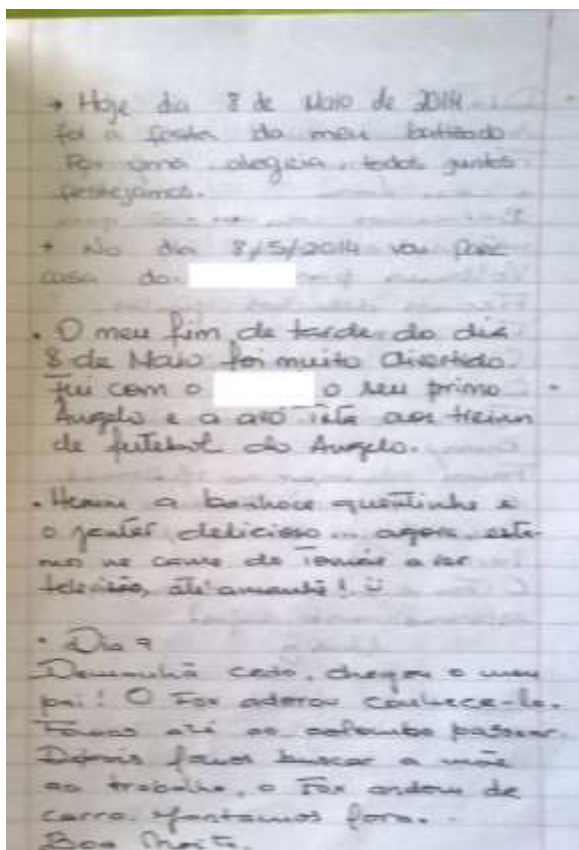 → Hoje dia 8 de Maio de 2014
foi a festa do meu batizado
Foi uma alegria, todos juntos
festejamos.
→ No dia 8/5/2014 vou para
casa do
• O meu fim de tarde do dia
8 de Maio foi muito divertido.
Fui com o o seu primo
Angelo e a avó aos treinos
de futebol do Angelo.
• Hum a banhoca quentinha e
o jantar delicioso... agora esta-
mos na cama do Tomás a ver
televisão, até amanhã! ü
• Dia 9
Demanhã cedo, chegou o meu
pai! O Fox adorou conhece-lo.
Fomos até ao colombo passear.
Depois fomos buscar a mãe
ao trabalho, o Fox andou de
carro. Jantamos fora.
Boa Noite.